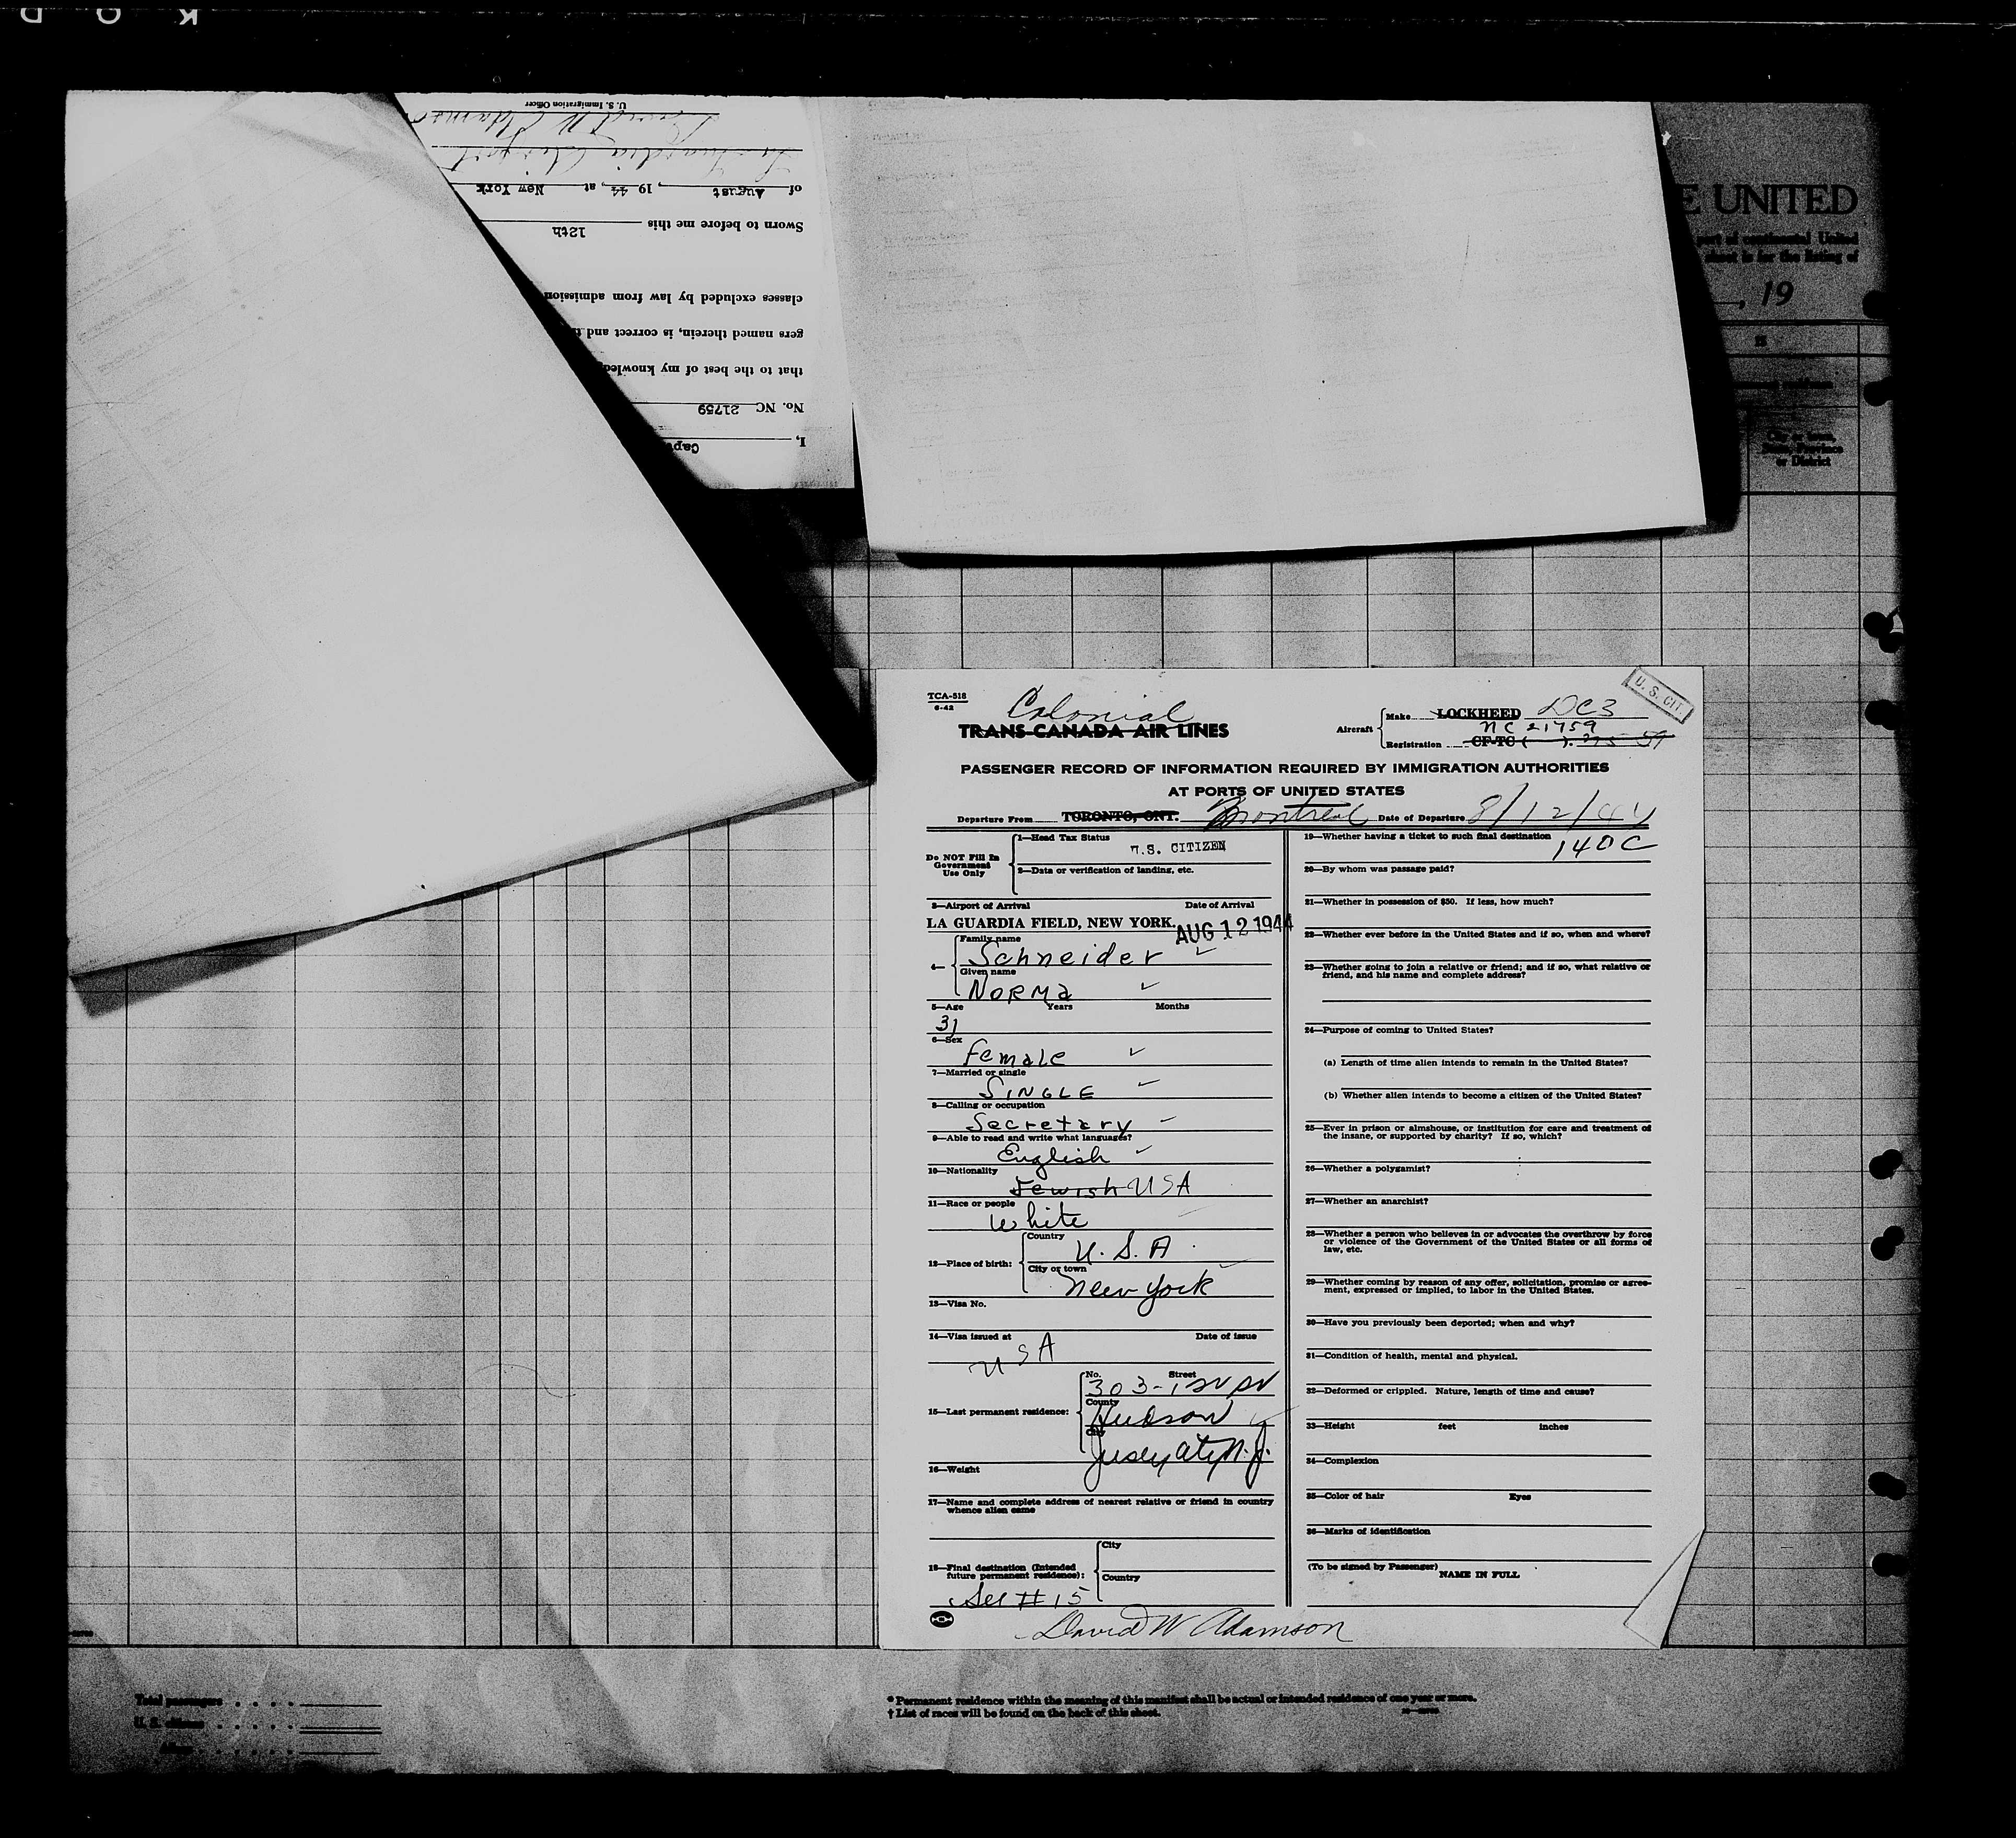 KOD
U. S. Immigration Officer
David W Adamso
La Guardia Airport
of August , 19 44, at New York
Sworn to before me this 12th
classes excluded by law from admission
gers named therein, is correct and
that to the best of my knowledg
No. NC 21759
I, Capt
E UNITED
part of continental United
sheet is for the listing of
, 19
City or town,
State, Province
or District
TCA-518
6-42
Colonial
TRANS-CANADA AIR LINES
Aircraft
Make LOCKHEED DC3
NC 21759
Registration CF-TC ( ).
U. S. CIT.
PASSENGER RECORD OF INFORMATION REQUIRED BY IMMIGRATION AUTHORITIES
AT PORTS OF UNITED STATES
Departure From TORONTO, ONT. Montreal Date of Departure 8/12/44
Do NOT Fill In
Government
Use Only
1—Head Tax Status
U.S. CITIZEN
2—Data or verification of landing, etc.
3—Airport of Arrival Date of Arrival
LA GUARDIA FIELD, NEW YORK. AUG 12 1944
4—
Family name
Schneider
Given name
NORMA
5—Age Years Months
31
6—Sex
Female
7—Married or single
SINGLE
8—Calling or occupation
Secretary
9—Able to read and write what languages?
English
10—Nationality
Jewish USA
11—Race or people
White
12—Place of birth:
Country
U. S. A.
City or town
New York
13—Visa No.
14—Visa issued at Date of issue
USA
15—Last permanent residence:
No. Street
303-
County
Hudson
City
Jersey City N.J.
16—Weight
17—Name and complete address of nearest relative or friend in country
whence alien came
18—Final destination (Intended
future permanent residence):
City
Country
See #15
19—Whether having a ticket to such final destination
140C
20—By whom was passage paid?
21—Whether in possession of $50. If less, how much?
22—Whether ever before in the United States and if so, when and where?
23—Whether going to join a relative or friend; and if so, what relative or
friend, and his name and complete address?
24—Purpose of coming to United States?
(a) Length of time alien intends to remain in the United States?
(b) Whether alien intends to become a citizen of the United States?
25—Ever in prison or almshouse, or institution for care and treatment of
the insane, or supported by charity? If so, which?
26—Whether a polygamist?
27—Whether an anarchist?
28—Whether a person who believes in or advocates the overthrow by force
or violence of the Government of the United States or all forms of
law, etc.
29—Whether coming by reason of any offer, solicitation, promise or agree-
ment, expressed or implied, to labor in the United States.
30—Have you previously been deported; when and why?
31—Condition of health, mental and physical.
32—Deformed or crippled. Nature, length of time and cause?
33—Height feet inches
34—Complexion
35—Color of hair Eyes
36—Marks of identification
(To be signed by Passenger)
NAME IN FULL
David W Adamson
Total passengers
U. S. citizens
Aliens
* Permanent residence within the meaning of this manifest shall be actual or intended residence of one year or more.
† List of races will be found on the back of this sheet.